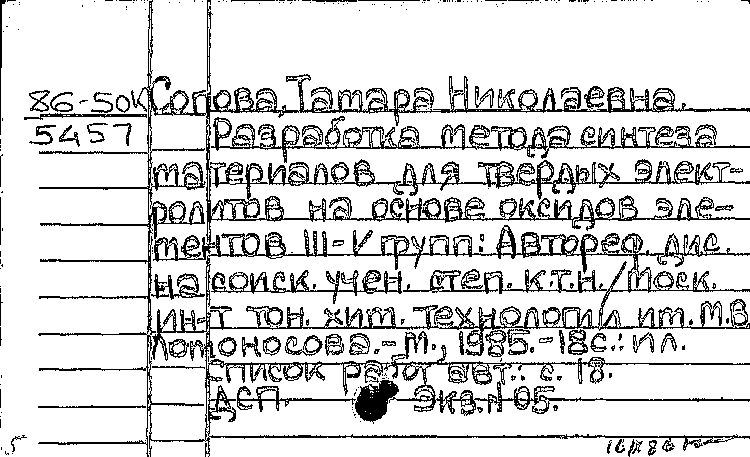 86-50К Сопова, Тамара Николаевна.
5457 Разработка метода синтеза
материалов для твердых элект-
ролитов на основе оксидов эле-
ментов III-V групп: Автореф. дис.
на соиск. учен. степ. к.т.н. / Моск.
ин-т тон. хим. технологии им. М.В.
Ломоносова. - М., 1985. - 18с.: ил.
Список работ авт.: с. 18.
ДСП. Экз. N 05.
5